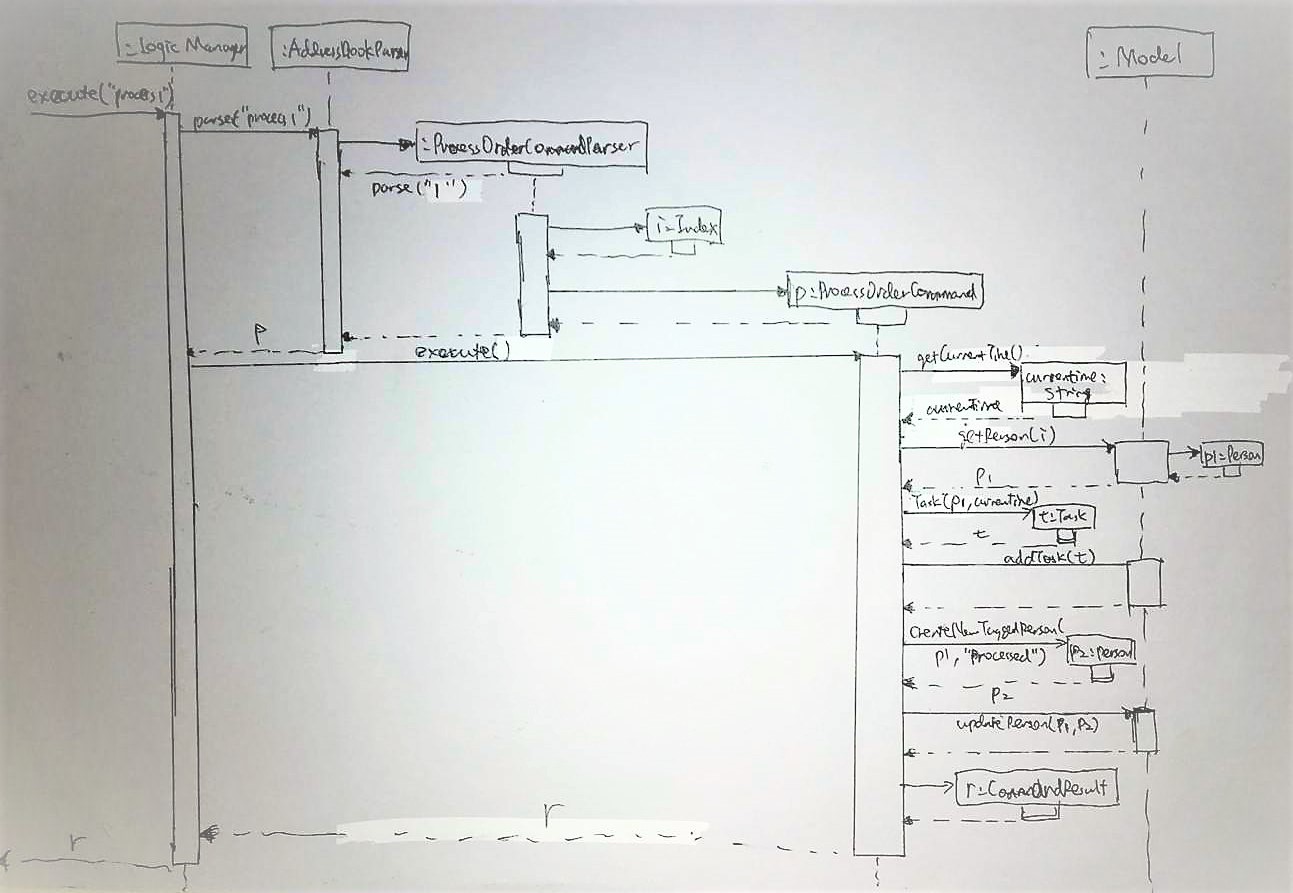 :Logic Manager
:AddressBookParser
:Model
execute("process 1")
parse("process 1")
:ProcessOrderCommandParser
parse("1")
i:Index
p:ProcessOrderCommand
p
execute()
getCurrentTime()
currentime:
String
currentime
getPerson(i)
p1:Person
p1
Task(p1, currentime)
t:Task
t
addTask(t)
CreateNewTaggedPerson(
p1, "Processed")
p2:person
p2
updatePerson(p1, p2)
r:CommandResult
r
r